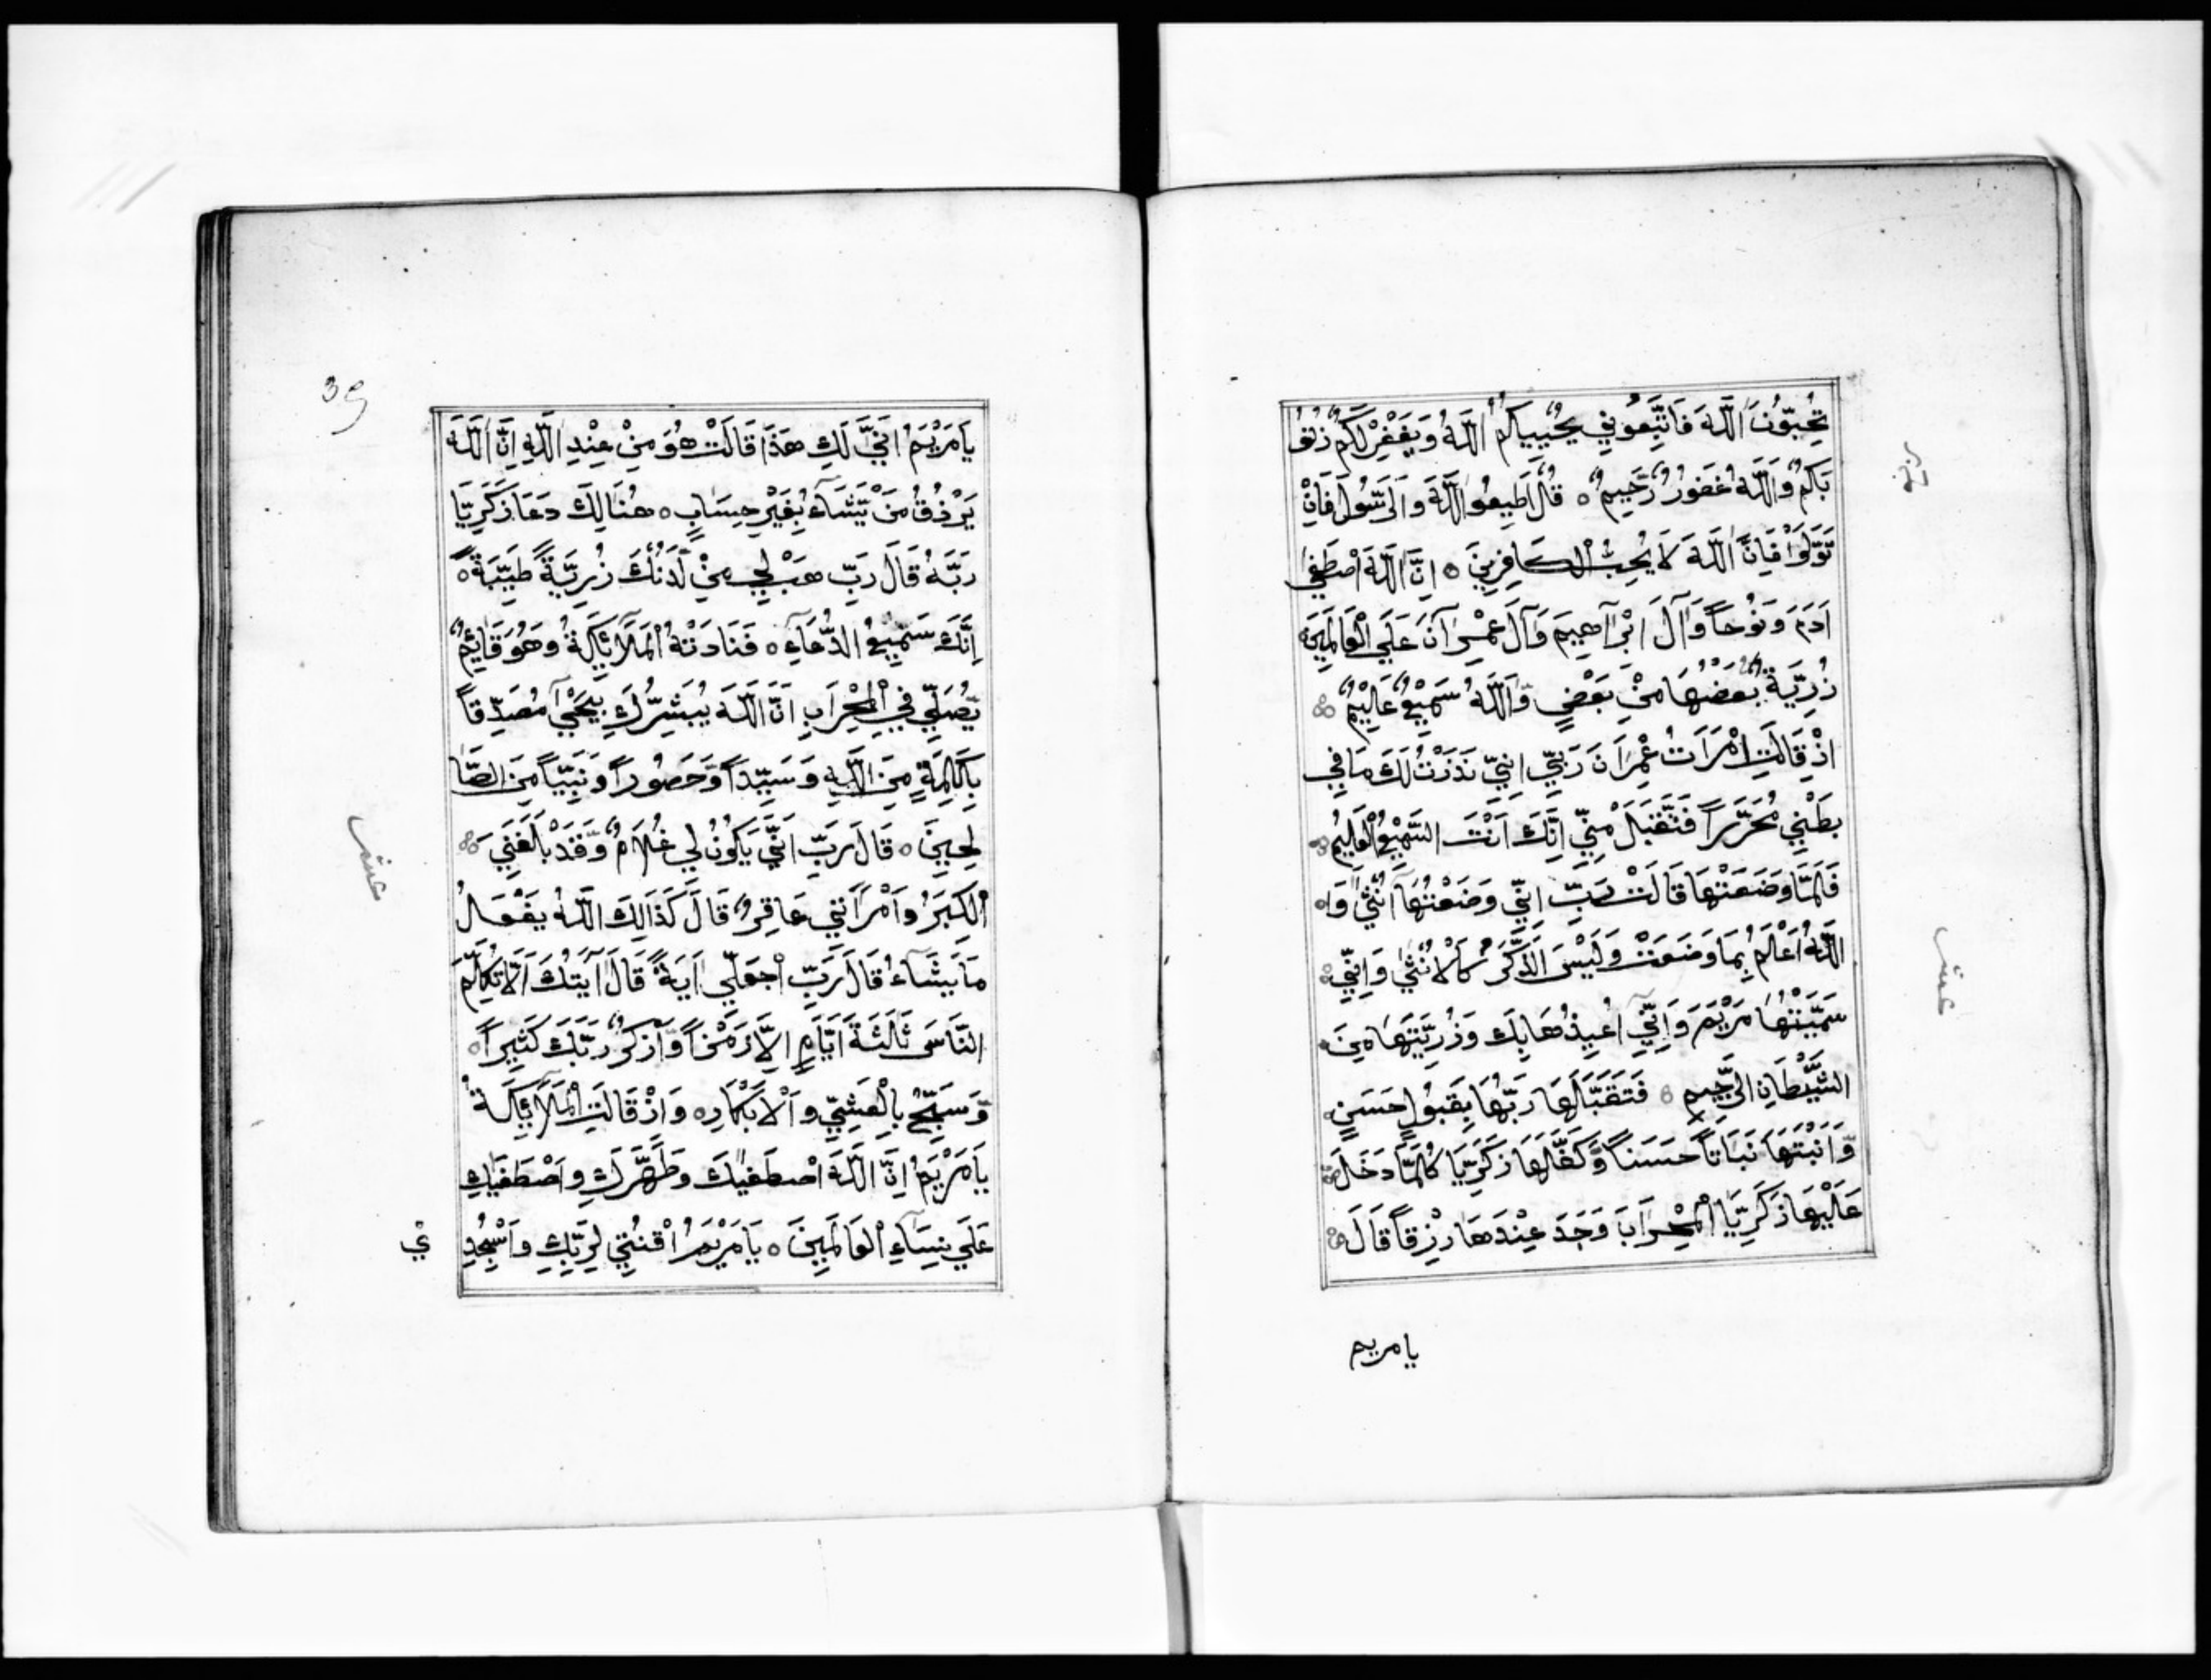 تُحِبُّونَ اَللَّهَ فَاتَّبِعُونِي يُحْبِبْكُمُ اللَّهُ وَيَغْفِرْ لَكُمْ ذُنُو
بَكُمْ وَاللَّهُ غَفُورٌ رَّحِيمٌ ۝ قُلْ اَطِيعُو اللَّهَ وَالرَّسُولَ فَاِنْ
تَوَلَّوْا فَاِنَّ اللَّهَ لَا يُحِبُّ الْكَافِرِينَ ۝ اِنَّ اللَّهَ اصْطَفٰى
اٰدَمَ وَنُوْحاً وَاٰلَ اِبْرَاهِيمَ وَاٰلَ عِمْرَانَ عَلَي الْعَالَمِينَ
ذُرِّيَّةً بَعْضُهَا مِنْ بَعْضٍ وَّاللَّهُ سَمِيْعٌ عَلِيْمٌ
اِذْ قَالَتِ امْرَاَتُ عِمْرَانَ رَبِّي اِنِّيْ نَذَرْتُ لَكَ مَا فِي
بَطْنِي مُحَرَّراً فَتَقَبَّلْ مِنِّي اِنَّكَ اَنْتَ السَّمِيْعُ الْعَلِيمُ
فَلَمَّا وَضَعَتْهَا قَالَتْ رَبِّ اِنِّي وَضَعْتُهَآ اُنْثٰى وَا
اللَّهُ اَعْلَمُ بِمَا وَضَعَتْ وَلَيْسَ الذَّكَرُ كَالْاُنْثٰي وَاِنِّي
سَمَّيْتُهَا مَرْيَمَ وَاِنِّي اُعِيذُهَا بِكَ وَذُرِّيَّتَهَا مِنَ
الشَّيْطَانِ الرَّجِيمِ ۝ فَتَقَبَّلَهَا رَبُّهَا بِقَبُولٍ حَسَنٍ
وَّاَنْبَتَهَا نَبَاتاً حَسَناً وَّكَفَّلَهَا زَكَرِيَّا كُلَّمَا دَخَلَ
عَلَيْهَا زَكَرِيَّا الْمِحْرَابَ وَجَدَ عِنْدَهَا رِزْقاً قَالَ
يا مريم
عشر
39
يَا مَرْيَمُ اَنّٰي لَكِ هَذَا قَالَتْ هُوَ مِنْ عِنْدِ اللَّهِ اِنَّ اللَّهَ
يَرْزُقُ مَنْ يَّشَآءُ بِغَيْرِ حِسَابٍ ۝ هُنَالِكَ دَعَا زَكَرِيَّا
رَبَّهُ قَالَ رَبِّ هَبْ لِي مِنْ لَّدُنْكَ ذُرِّيَّةً طَيِّبَةً
اِنَّكَ سَمِيْعُ الدُّعَآءِ ۝ فَنَادَتْهُ الْمَلَآئِكَةُ وَهُوَ قَائِمٌ
يُّصَلِّي فِي الْمِحْرَابِ اَنَّ اللَّهَ يُبَشِّرُكَ بِيَحْيٰى مُصَدِّقاً
بِكَلِمَةٍ مِنَ اللَّهِ وَسَيِّداً وَّحَصُوراً وَنَبِيّاً مِنَ الصَّا
لِحِينَ ۝ قَالَ رَبِّ اَنّٰي يَكُونُ لِي غُلَامٌ وَّقَدْ بَلَغَنِيَ
الْكِبَرُ وَاَمْرَاَتِي عَاقِرٌ قَالَ كَذَالِكَ اللَّهُ يَفْعَلُ
مَا يَشَآءُ قَالَ رَبِّ اجْعَلِّي اٰيَةً قَالَ اٰيَتُكَ اَلَّا تُكَلِّمَ
النَّاسَ ثَلٰثَةَ اَيَّامٍ اِلَّا رَمْزاً وَّاذْكُرْ رَبَّكَ كَثِيراً
وَّسَبِّحْ بِالْعَشِيِّ وَالْاَبْكَارِ ۝ وَاِذْ قَالَتِ الْمَلَآئِكَةُ
يَا مَرْيَمُ اِنَّ اللَّهَ اصْطَفٰيكِ وَطَهَّرَكِ وَاصْطَفٰيكِ
عَلَي نِسَآءِ الْعَالَمِينَ ۝ يَا مَرْيَمُ اقْنُتِي لِرَبِّكِ وَاسْجُدِ
يْ
عشر